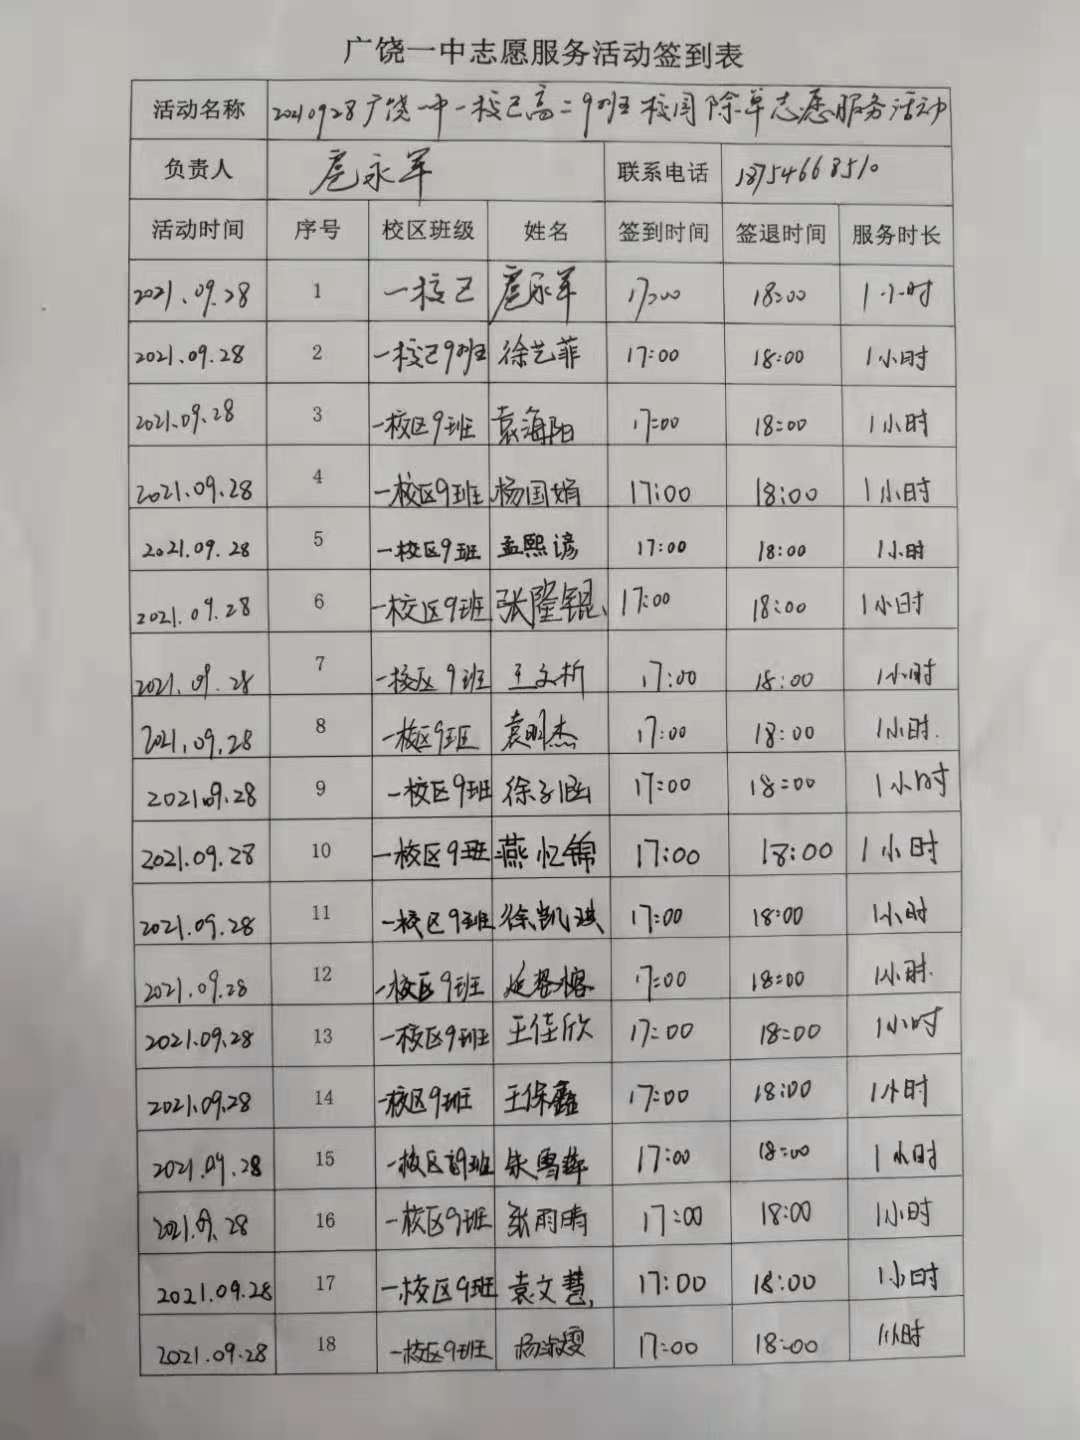 广饶一中志愿服务活动签到表
活动名称 20210928广饶一中一校区高二9班校园除草志愿服务活动
负责人 扈永军 联系电话 18754668510
活动时间 序号 校区班级 姓名 签到时间 签退时间 服务时长
2021.09.28 1 一校区 扈永军 17:00 18:00 1小时
2021.09.28 2 一校区9班 徐艺菲 17:00 18:00 1小时
2021.09.28 3 一校区9班 袁海阳 17:00 18:00 1小时
2021.09.28 4 一校区9班 杨国娟 17:00 18:00 1小时
2021.09.28 5 一校区9班 孟熙谚 17:00 18:00 1小时
2021.09.28 6 一校区9班 张隆锟 17:00 18:00 1小时
2021.09.28 7 一校区9班 王文析 17:00 18:00 1小时
2021.09.28 8 一校区9班 袁明杰 17:00 18:00 1小时.
2021.09.28 9 一校区9班 徐子涵 17:00 18:00 1小时
2021.09.28 10 一校区9班 燕忆锦 17:00 18:00 1小时
2021.09.28 11 一校区9班 徐凯琪 17:00 18:00 1小时
2021.09.28 12 一校区9班 17:00 18:00 1小时.
2021.09.28 13 一校区9班 王佳欣 17:00 18:00 1小时
2021.09.28 14 一校区9班 王保鑫 17:00 18:00 1小时
2021.09.28 15 一校区9班 17:00 18:00 1小时
2021.09.28 16 一校区9班 张雨晴 17:00 18:00 1小时
2021.09.28 17 一校区9班 袁文慧 17:00 18:00 1小时
2021.09.28 18 一校区9班 17:00 18:00 1小时